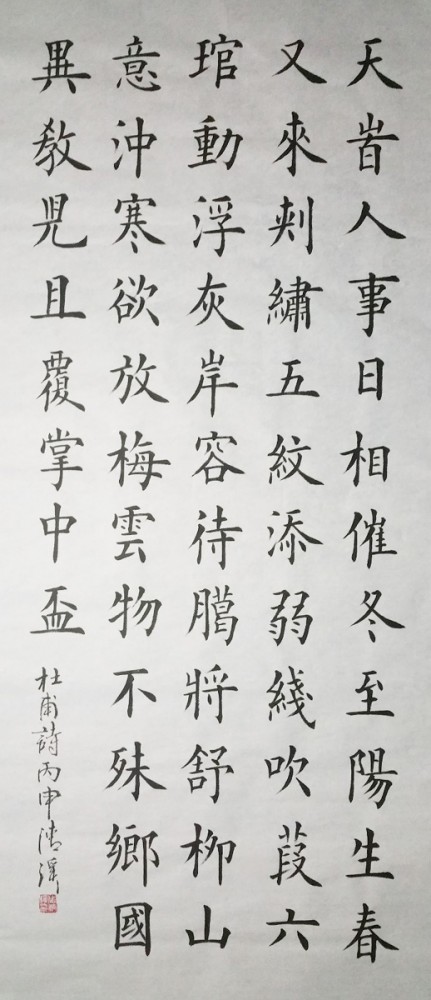 天旹人事日相催冬至陽生春
又來刾繡五紋添弱綫吹葭六
琯動浮灰岸容待臈將舒柳山
意沖寒欲放梅雲物不殊鄉國
異教兒且覆掌中盃
杜甫詩丙申清